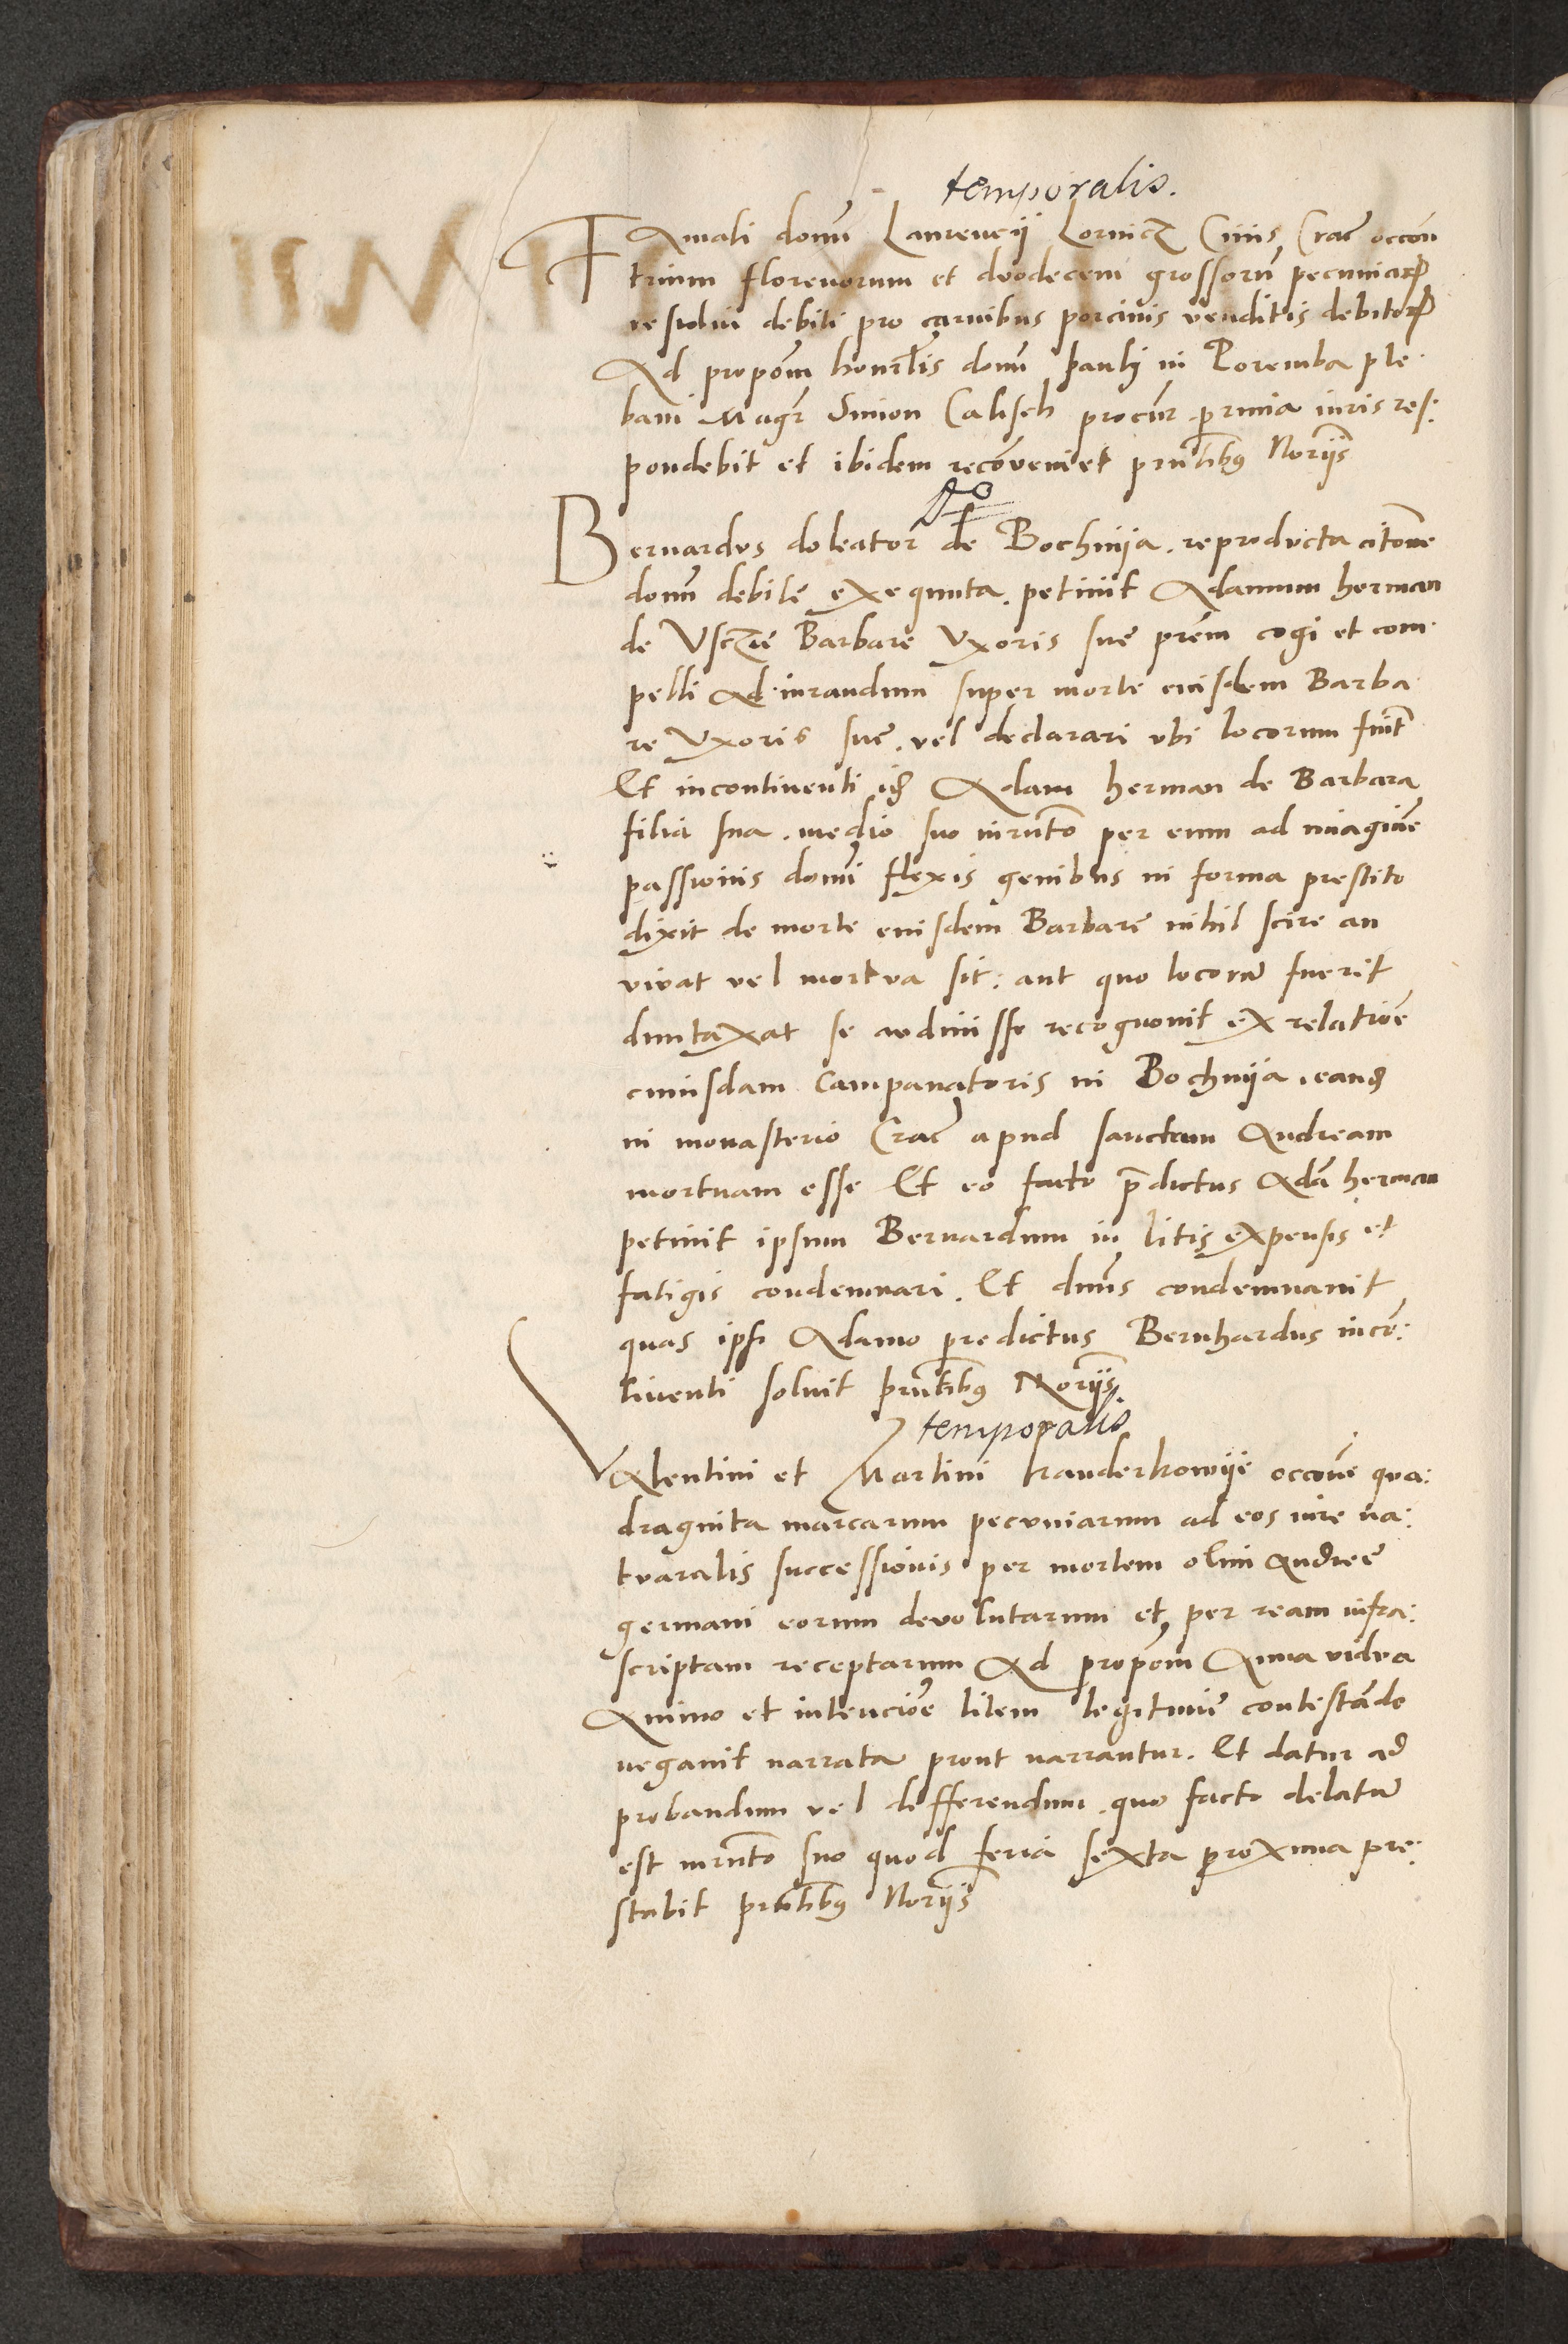 temporalis.
Famati domi Laurencij Lornicz Civis Crac occon
trium florenorum et duodecem grossorum pecuniarum
residui debiti pro carnibus porcinis venditis debitorum
Ad propom honrlis domi pauli in Poremba ple
bani Magr Simon Calisch procur prima iuris res:
pondebit et ibidem reconveniet pntibus Norijs
Bernardus doleator de Bochnija. reproducta citone
domi debite exequuta. petiuit Adamum herman
de Usczie Barbare Uxoris sue prem cogi et com
pelli ad iurandum super morte eiusdem Barba
re Uxoris sue. vel declarari ubi locorum fuit
Et incontinenti idem Adam herman de Barbara
filia sua. medio suo iurnto per eum ad imagine
passionis domi flexis genibus in forma prestito
dixit de morte eiusdem Barbare nihil scire an
vivat vel mortva sit: aut quo locorum fuerit
duntaxat se audivisse recognouit ex relatione
cuiusdam campanatoris in Bochnija. eandem
in monasterio Crac apud sanctum Andream
mortuam esse Et eo facto predictus Adam herman
petiuit ipsum Bernardum in litis expensis et
fatigis condemnari. Et dnus condemnauit
quas ipsi Adamo predictus Bernhardus incon:
tinenti soluit pntibus Norijs
temporalis
Valentini et Martini handerkowije occone qua:
draginta marcarum pecuniarum ad eos iure na:
turalis successionis per mortem olim Andree
germani eorum devolutarum et per ream infra:
scriptam receptarum Ad propom Anna vidua
Animo et intencione litem legitime contestando
negauit narrata prout narrantur. Et datur ad
probandum vel defferendum. quo facto delatum
est iurnto suo quod feria sexta proxima pre:
stabit pntibus Norijs